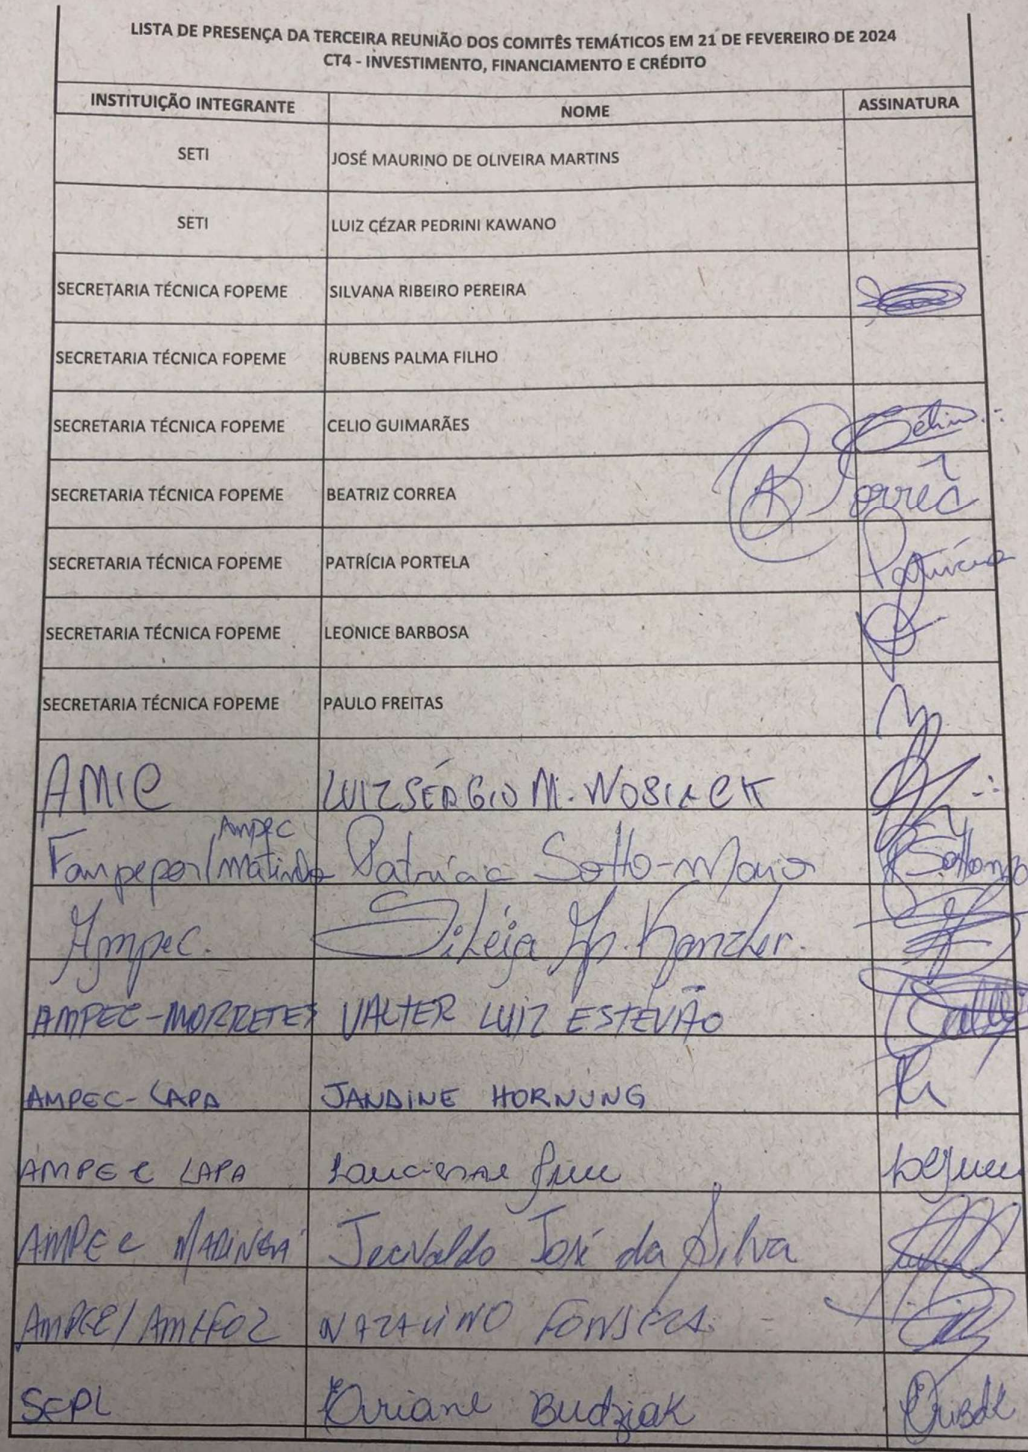 LISTA DE PRESENÇA DA TERCEIRA REUNIÃO DOS COMITÊS TEMÁTICOS EM 21 DE FEVEREIRO DE 2024
CT4 - INVESTIMENTO, FINANCIAMENTO E CRÉDITO
INSTITUIÇÃO INTEGRANTE NOME ASSINATURA
SETI JOSÉ MAURINO DE OLIVEIRA MARTINS
SETI LUIZ CÉZAR PEDRINI KAWANO
SECRETARIA TÉCNICA FOPEME SILVANA RIBEIRO PEREIRA
SECRETARIA TÉCNICA FOPEME RUBENS PALMA FILHO
SECRETARIA TÉCNICA FOPEME CELIO GUIMARÃES Célio
SECRETARIA TÉCNICA FOPEME BEATRIZ CORREA
SECRETARIA TÉCNICA FOPEME PATRÍCIA PORTELA Patrícia
SECRETARIA TÉCNICA FOPEME LEONICE BARBOSA
SECRETARIA TÉCNICA FOPEME PAULO FREITAS
AMIC LUIZ SÉRGIO M. WOSIACK
Ampec
Fampepar/ Patrícia Sotto-Maior
Ampec.
AMPEC-MORRETES VALTER LUIZ ESTEVÃO
AMPEC-LAPA JANDINE HORNUNG
AMPEC LAPA
AMPEC MARINGÁ José da Silva
FONSECA
SEPL Ariane Budziak